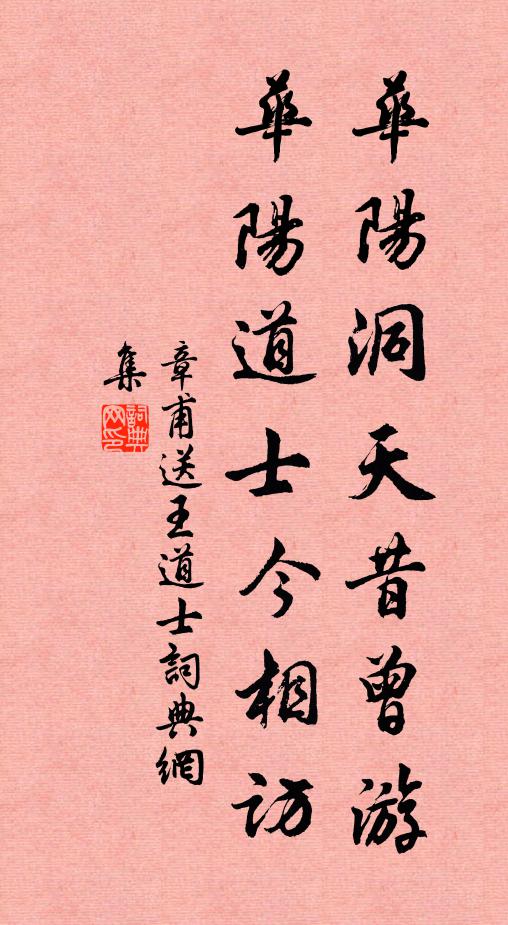 華陽洞天昔曾游
華陽道士今相訪
章甫送王道士詞典網
集
詞典网印